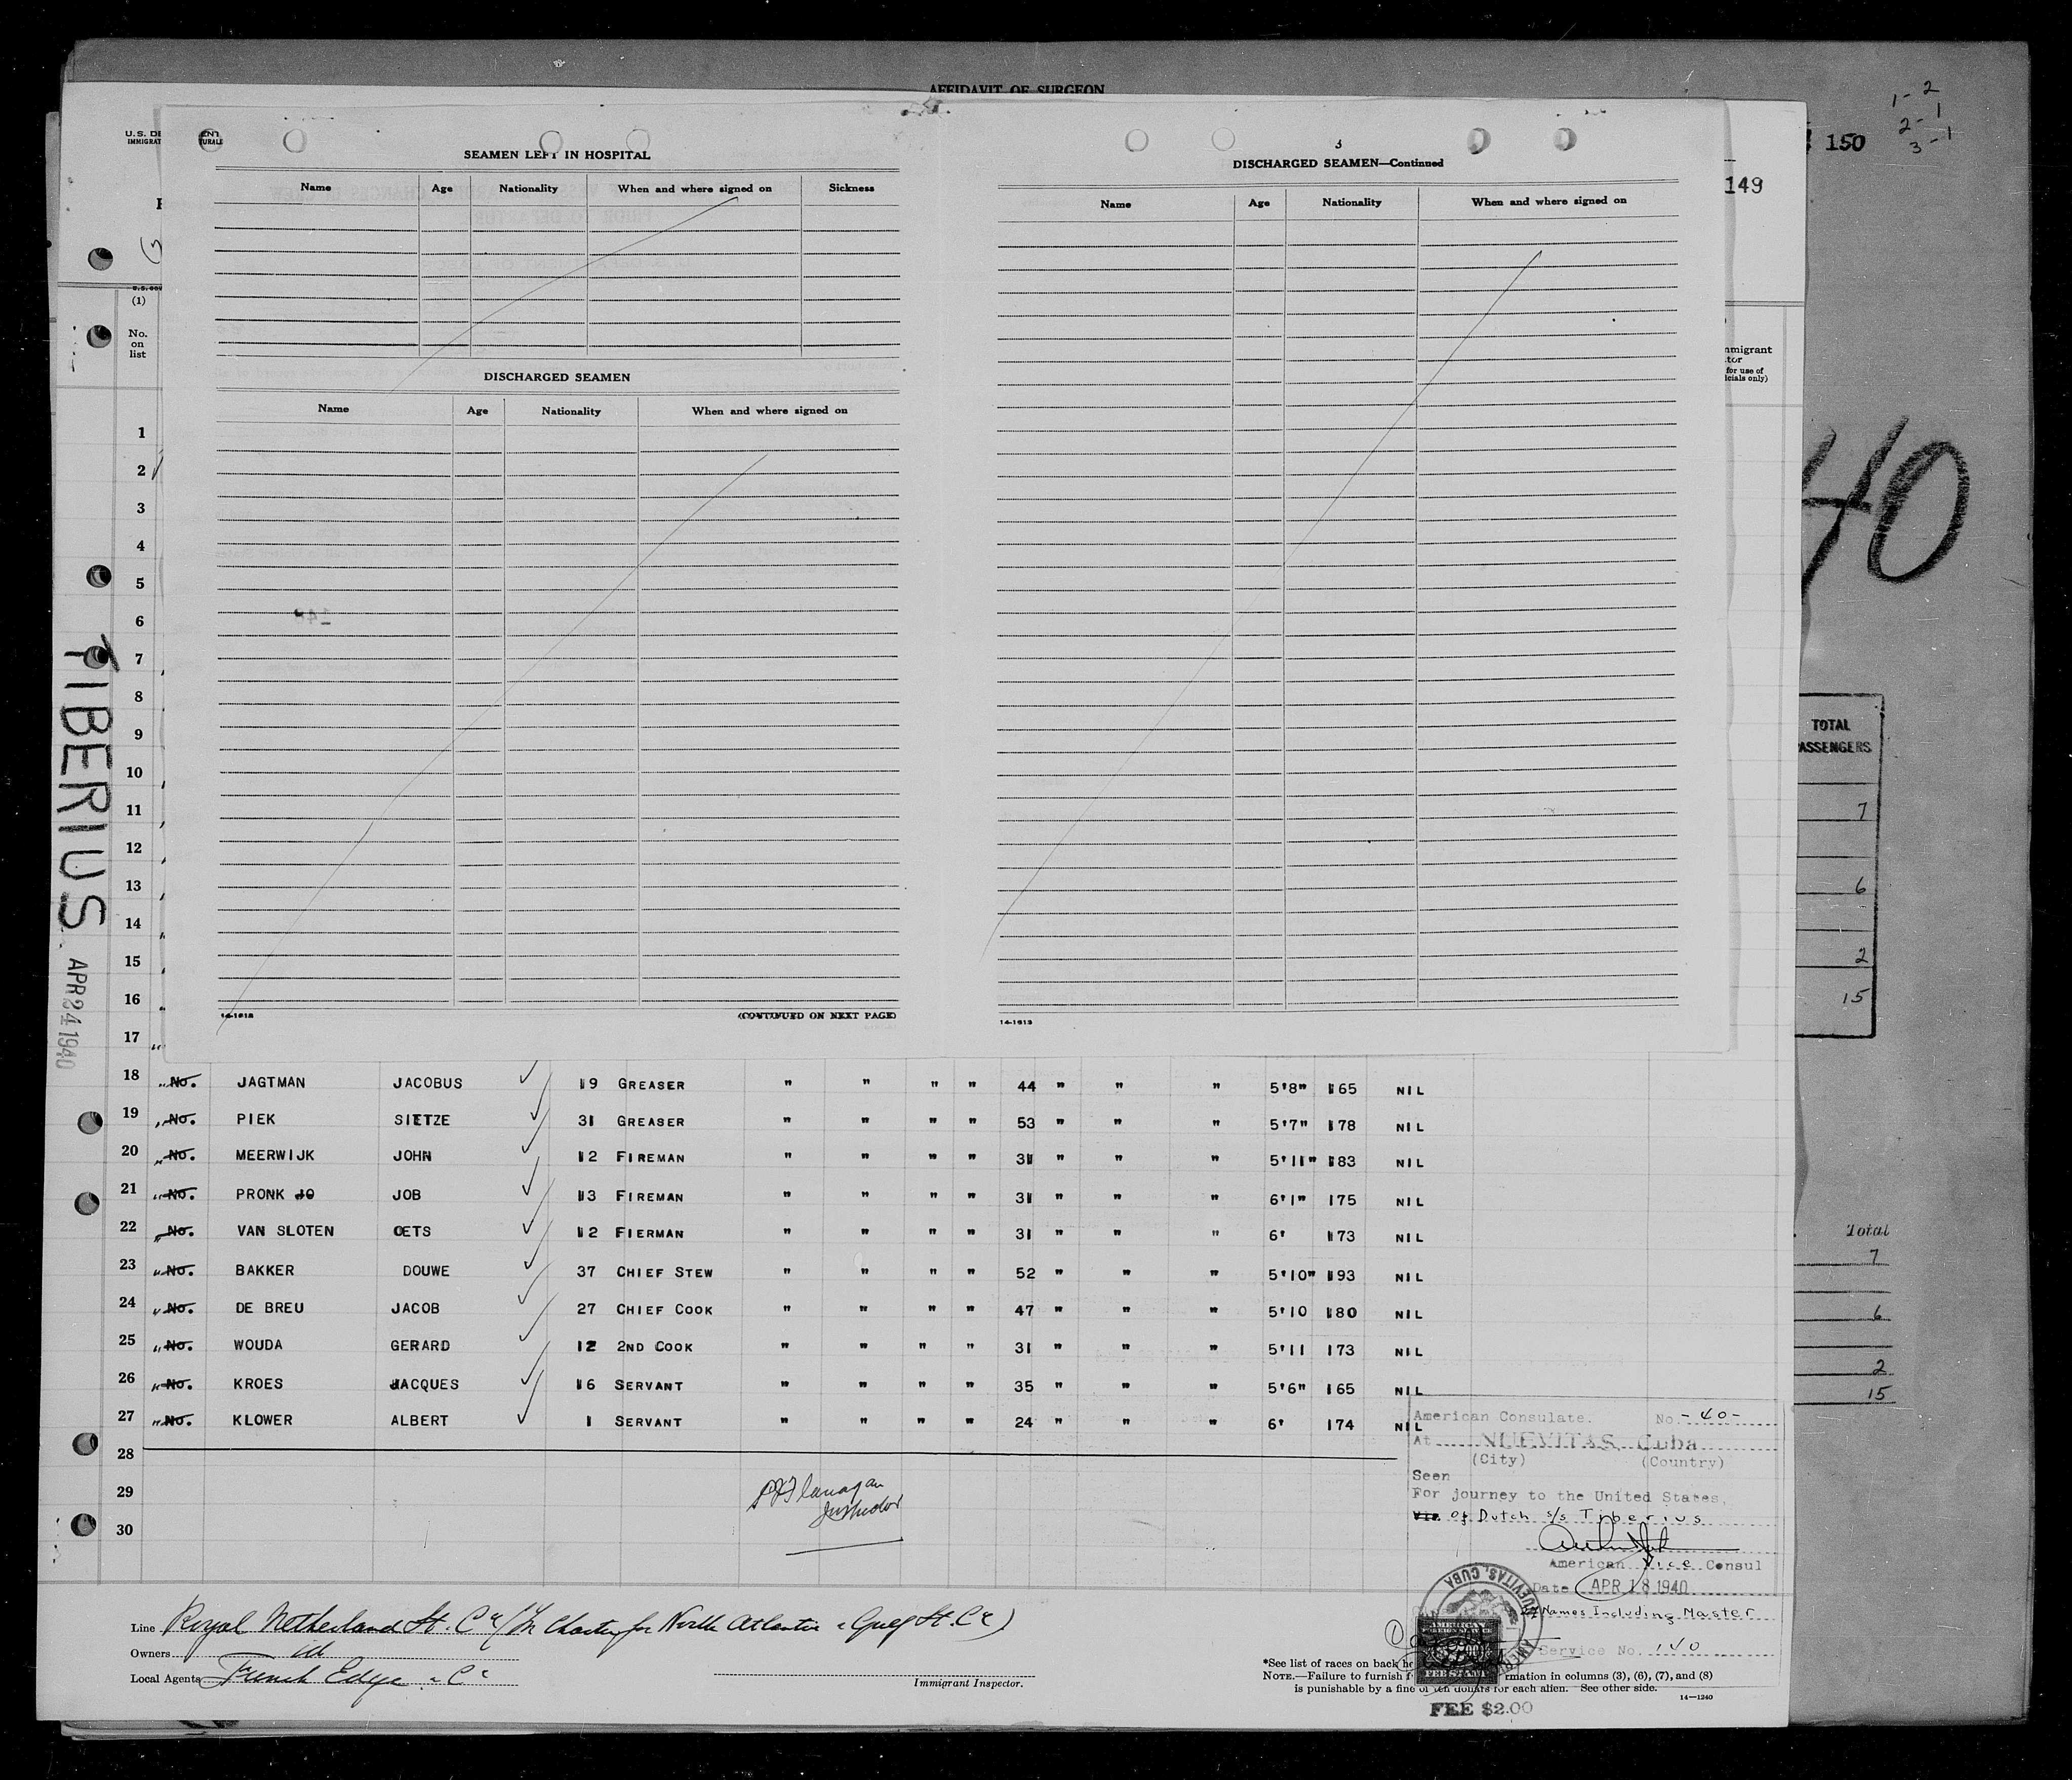 AFFIDAVIT OF SURGEON
1- 2
2- 1
3 -1
150
149
U.S. DE
IMMIGRAT
ENT
TURALE
SEAMEN LEFT IN HOSPITAL
Name Age Nationality When and where signed on Sickness
DISCHARGED SEAMEN
Name Age Nationality When and where signed on
14-1913
(CONTINUED ON NEXT PAGE)
3
DISCHARGED SEAMEN—Continued
Name Age Nationality When and where signed on
14-1913
(1)
No.
on
list
mmigrant
tor
for use of
icials only)
40
TOTAL
ASSENGERS
7
6
2
15
Total
7
6
2
15
TIBERIUS
APR 24 1940
1
2
3
4
5
6
7
8
9
10
11
12
13
14
15
16
17 "
18 " No. JAGTMAN JACOBUS 19 GREASER " " " " 44 " " " 5'8" 165 NIL
19 " No. PIEK SIETZE 31 GREASER " " " " 53 " " " 5'7" 178 NIL
20 " No. MEERWIJK JOHN 12 FIREMAN " " " " 31 " " " 5'11" 183 NIL
21 " No. PRONK JO JOB 13 FIREMAN " " " " 31 " " " 6'1" 175 NIL
22 " No. VAN SLOTEN OETS 12 FIERMAN " " " " 31 " " " 6' 173 NIL
23 " No. BAKKER DOUWE 37 CHIEF STEW " " " " 52 " " " 5'10" 193 NIL
24 " No. DE BREU JACOB 27 CHIEF COOK " " " " 47 " " " 5'10 180 NIL
25 " No. WOUDA GERARD 12 2ND COOK " " " " 31 " " " 5'11 173 NIL
26 " No. KROES JACQUES 16 SERVANT " " " " 35 " " " 5'6" 165 NIL
27 " No. KLOWER ALBERT 1 SERVANT " " " " 24 " " " 6' 174 NIL
28
29
30
Flanagan
Inspector
American Consulate. No. -40-
At NUEVITAS, Cuba
(City) (Country)
Seen
For journey to the United States,
Via of Dutch s/s Tiberius
American Vice Consul
Date APR 18 1940
27 Names Including Master
Service No. 140
NUEVITAS, CUBA
AMERICAN
FEE STAMP
FEE $2.00
Line Royal Netherland St. Co (In Charter for North Atlantic & Gulf St. Co)
Owners do
Local Agents French Edye & Co
Immigrant Inspector.
*See list of races on back he
NOTE.—Failure to furnish f rmation in columns (3), (6), (7), and (8)
is punishable by a fine of ten dollars for each alien. See other side.
14—1240